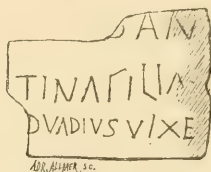 AN
TINA FILIA
DVADIVS VIXE
ADR. ALLMER, SC.